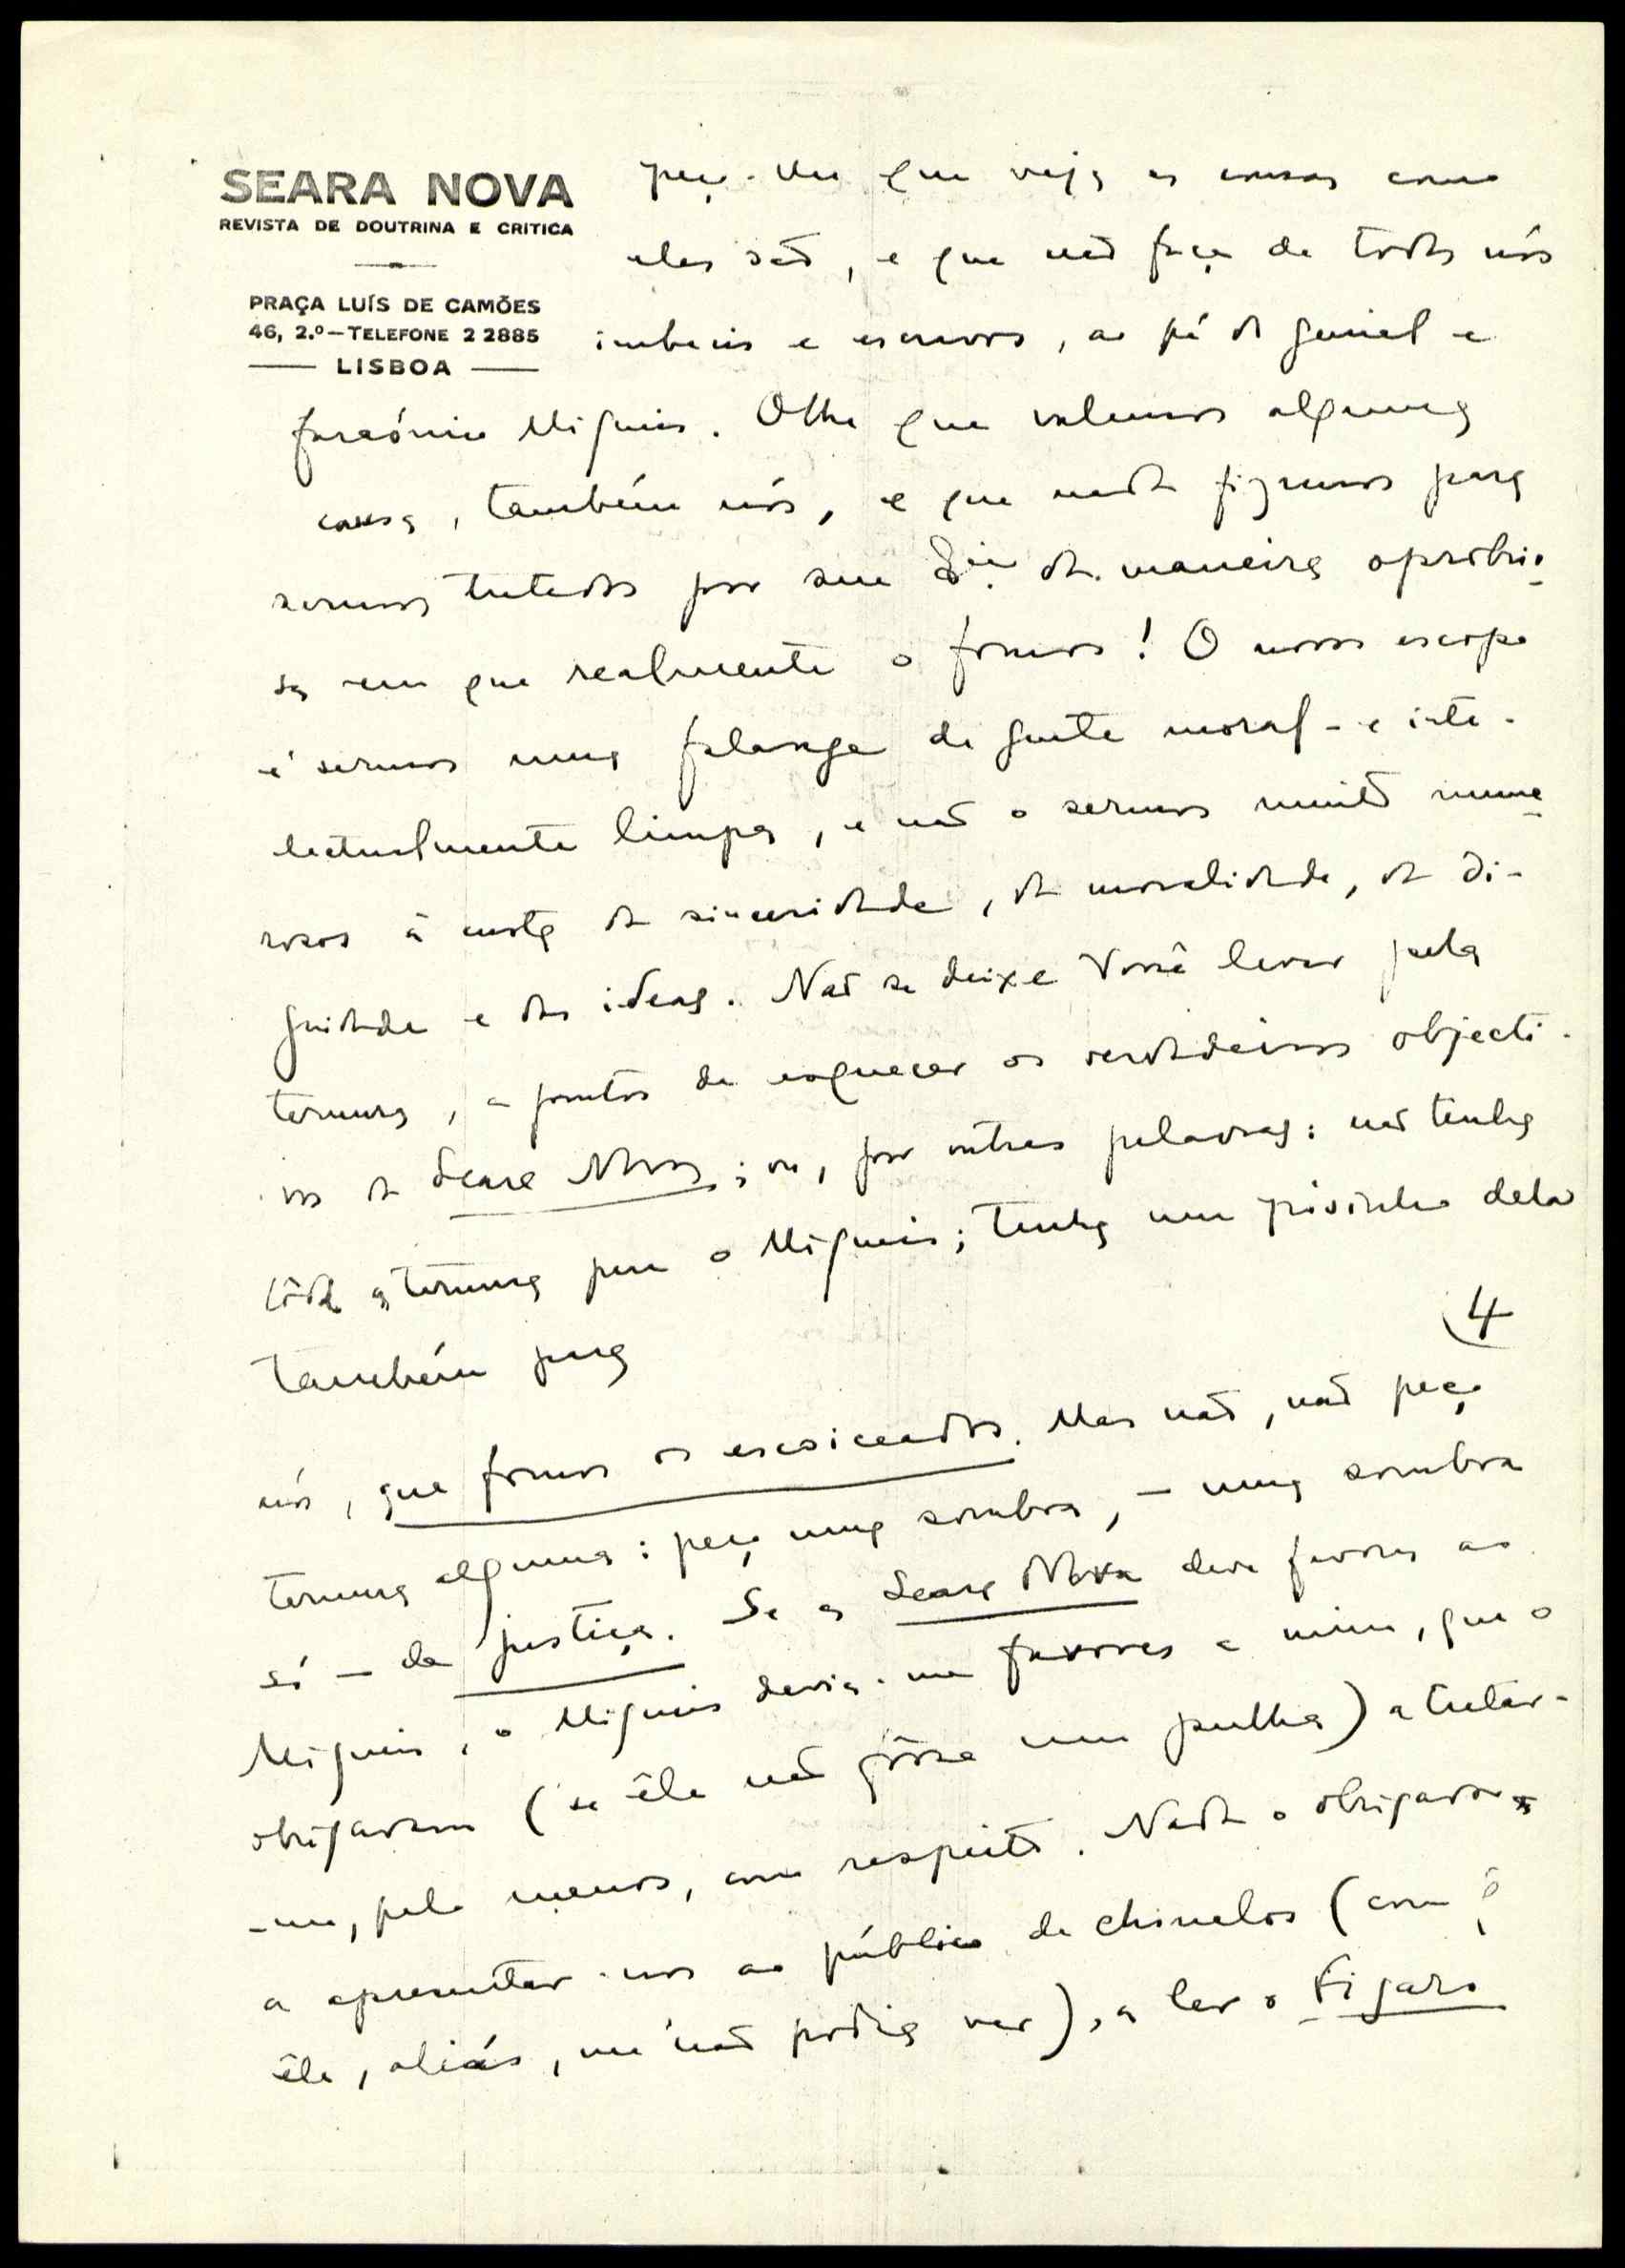 SEARA NOVA
REVISTA DE DOUTRINA E CRITICA
PRAÇA LUÍS DE CAMÕES
46, 2.º—TELEFONE 2 2885
LISBOA
peço-lhe que veja as cousas como
elas são, e que não faça de todos nós
imbecis e escravos, ao pé do genial e
faraónico Miguéis. Olhe que valemos alguma
cousa, também nós, e que nada fizemos para
sermos tratados por sua da maneira oprobrio-
sa em que realmente o fomos! O nosso escopo
é sermos uma falange de gente moral- e inte-
lectualmente limpa, e não o sermos muito nume-
rosos à custa da sinceridade, da moralidade, da di-
gnidade e das ideas. Não se deixe Você levar pela
ternura, a pontos de esquecer os verdadeiros objecti-
vos da Seara Nova; ou, por outras palavras: não tenha
tôda a ternura para o Miguéis; tenha um pòsinho dela
também para
4
nós, que fomos os escoiceados. Mas não, não peço
ternura alguma: peço uma sombra, – uma sombra
só – de justiça. Se a Seara Nova deve favores ao
Miguéis, o Miguéis devia-me favores a mim, que o
obrigavam (se êle não fôsse um pulha) a tratar-
-me, pelo menos, com respeito. Nada o obrigava
a apresentar-nos ao público de chinelos (com q
êle, aliás, me não podia ver), a ler o Figaro